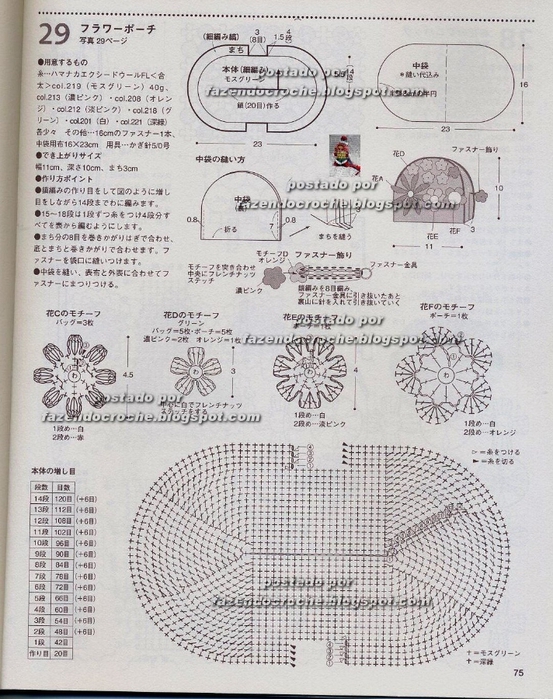 29 フラワーポーチ
写真29ページ
●用意するもの
糸…ハマナカエクシードウールFL<合
太>col.219(モスグリーン)40g、
col.213(濃ピンク)・col.208(オレン
ジ)・col.212(淡ピンク)・col.218(グ
リーン)・col.201(白)・col.221(深緑)
各少々 その他…16cmのファスナー1本、
中袋用布16×23cm 用具…かぎ針5/0号
●でき上がりサイズ
幅11cm、深さ10cm、まち3cm
●作り方ポイント
●鎖編みの作り目をして図のように増し
目をしながら14段までこま編みます。
●15〜18段は1段ずつ糸をつけ4段分す
べてを表から編むようにします。
●まち分の8目を巻きかがりはぎで合わせ、
底とまちと巻きかがりで合わせます。フ
ァスナーを袋口に縫いつけます。
●中袋を縫い、表布と外表に合わせてフ
ァスナーにまつりつける。
(細編み縞)
3
(8目)
4段
1.5
まち
本体(細編み)
モスグリーン
鎖(20目)作る
23
14段
中袋
*縫い代込み
16
23
postado por
fazendocroche.blogspot.com
中袋の縫い方
中袋
0.8
折る
7
0.8
まちを縫う
花D
ファスナー飾り
花A
花E
花F
10
11
3
postado por
fazendocroche.blogspot.com
モチーフD
オレンジ
ファスナー飾り
モチーフを突き合わせ
中央にフレンチナッツ
ステッチ
濃ピンク
ファスナー金具
鎖編みを8目編み、
ファスナー金具に引き抜いたあと
裏山に針を入れて引き抜いていく
花Cのモチーフ
バッグ=3枚
4.5
1段め…白
2段め…赤
花Dのモチーフ
グリーン
バッグ=5枚・ポーチ=5枚
濃ピンク=2枚 オレンジ=1枚
3
中心に白でフレンチナッツ
ステッチをする
花Eのモチーフ
ポーチ=1枚
4
1段め…白
2段め…淡ピンク
花Fのモチーフ
ポーチ=1枚
1段め…白
2段め…オレンジ
postado por
fazendocroche.blogspot.com
postado por
fazendocroche.blogspot.com
▷=糸をつける
►=糸を切る
本体の増し目
段数 目数
14段 120目 (+6目)
13段 112目 (+6目)
12段 108目 (+6目)
11段 102目 (+6目)
10段 96目 (+6目)
9段 90目 (+6目)
8段 84目 (+6目)
7段 78目 (+6目)
6段 72目 (+6目)
5段 66目 (+6目)
4段 60目 (+6目)
3段 54目 (+6目)
2段 48目 (+6目)
1段 42目
作り目 20目
postado por
fazendocroche.blogspot.com
†=モスグリーン
†=深緑
75